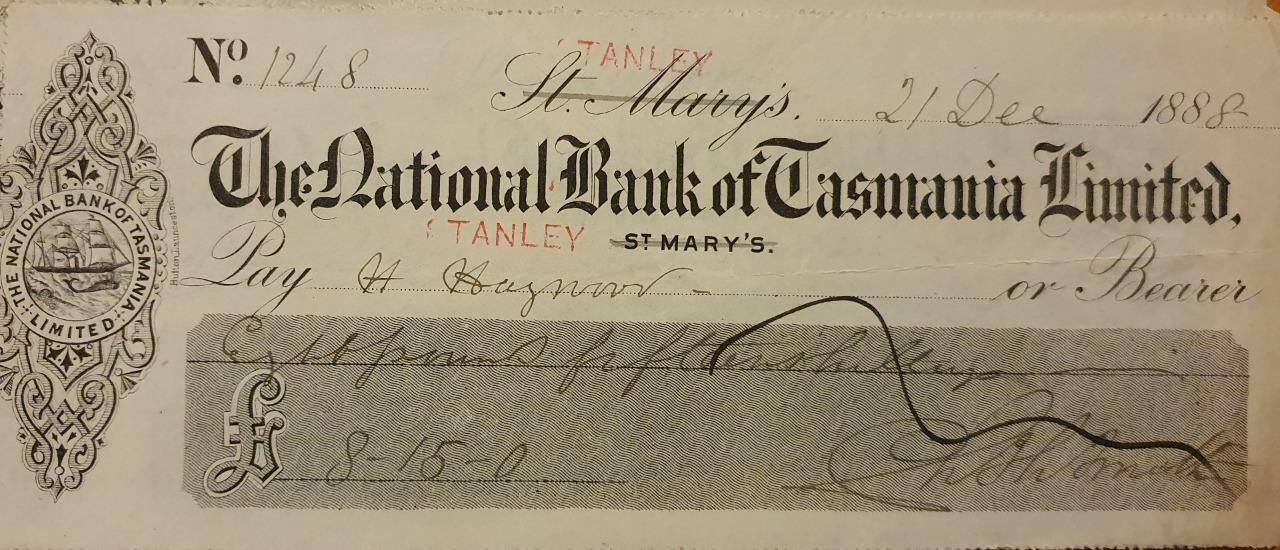 No. 1248
STANLEY
St. Mary's. 21 Dec 1888
The National Bank of Tasmania Limited,
STANLEY ST MARY'S.
Pay H Haywood - or Bearer
Eight pounds fifteen shillings
£ 8-15-0
THE NATIONAL BANK OF TASMANIA
LIMITED